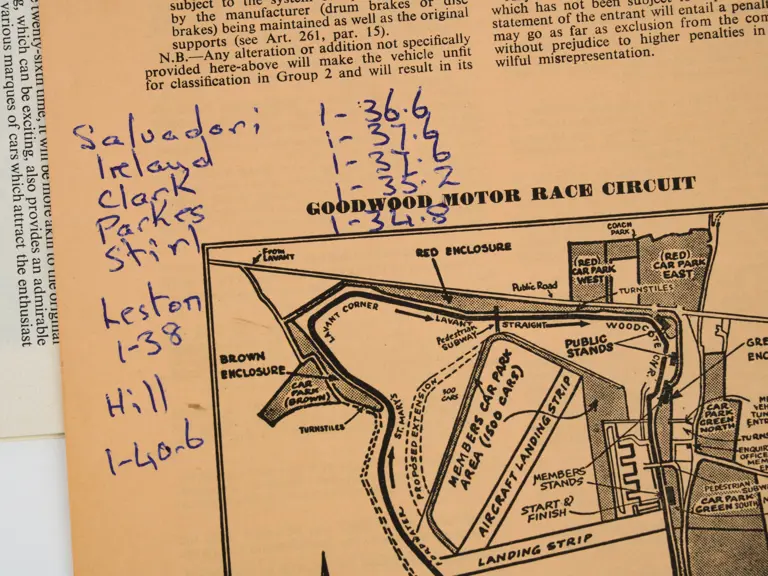 subject to the system
by the manufacturer (drum brakes or disc
brakes) being maintained as well as the original
supports (see Art. 261, par. 15).
N.B.—Any alteration or addition not specifically
provided here-above will make the vehicle unfit
for classification in Group 2 and will result in its
which has not been subject to
statement of the entrant will entail a penal
may go as far as exclusion from the com
without prejudice to higher penalties in
wilful misrepresentation.
twenty-sixth time, it will be more akin to the original
g, which can be exciting, also provides an admirable
various marques of cars which attract the enthusiast
Salvadori 1-36.6
Ireland 1-37.6
Clark 1-37.6
Parkes 1-35.2
Stirl 1-34.8
Leston
1-38
Hill
1-40.6
GOODWOOD MOTOR RACE CIRCUIT
FROM
LAVANT
RED ENCLOSURE
COACH
PARK
(RED)
CAR PARK
WEST
(RED)
CAR PARK
EAST
Public Road
TURNSTILES
LAVANT CORNER
LAVANT
STRAIGHT
WOODCOTE CNR.
Pedestrian
SUBWAY
PUBLIC
STANDS
BROWN
ENCLOSURE
CAR
PARK
(BROWN)
TURNSTILES
ST. MARYS
PROPOSED EXTENSION
300
CARS
MEMBERS CAR PARK
AREA (1600 CARS)
AIRCRAFT LANDING STRIP
MEMBERS
STANDS
START &
FINISH
LANDING STRIP
CAR
PARK
GREEN
NORTH
PEDESTRIAN SUBW
CAR PARK
GREEN SOUTH
GRE
ENC
TURNS
ENQUIR
OFFICE